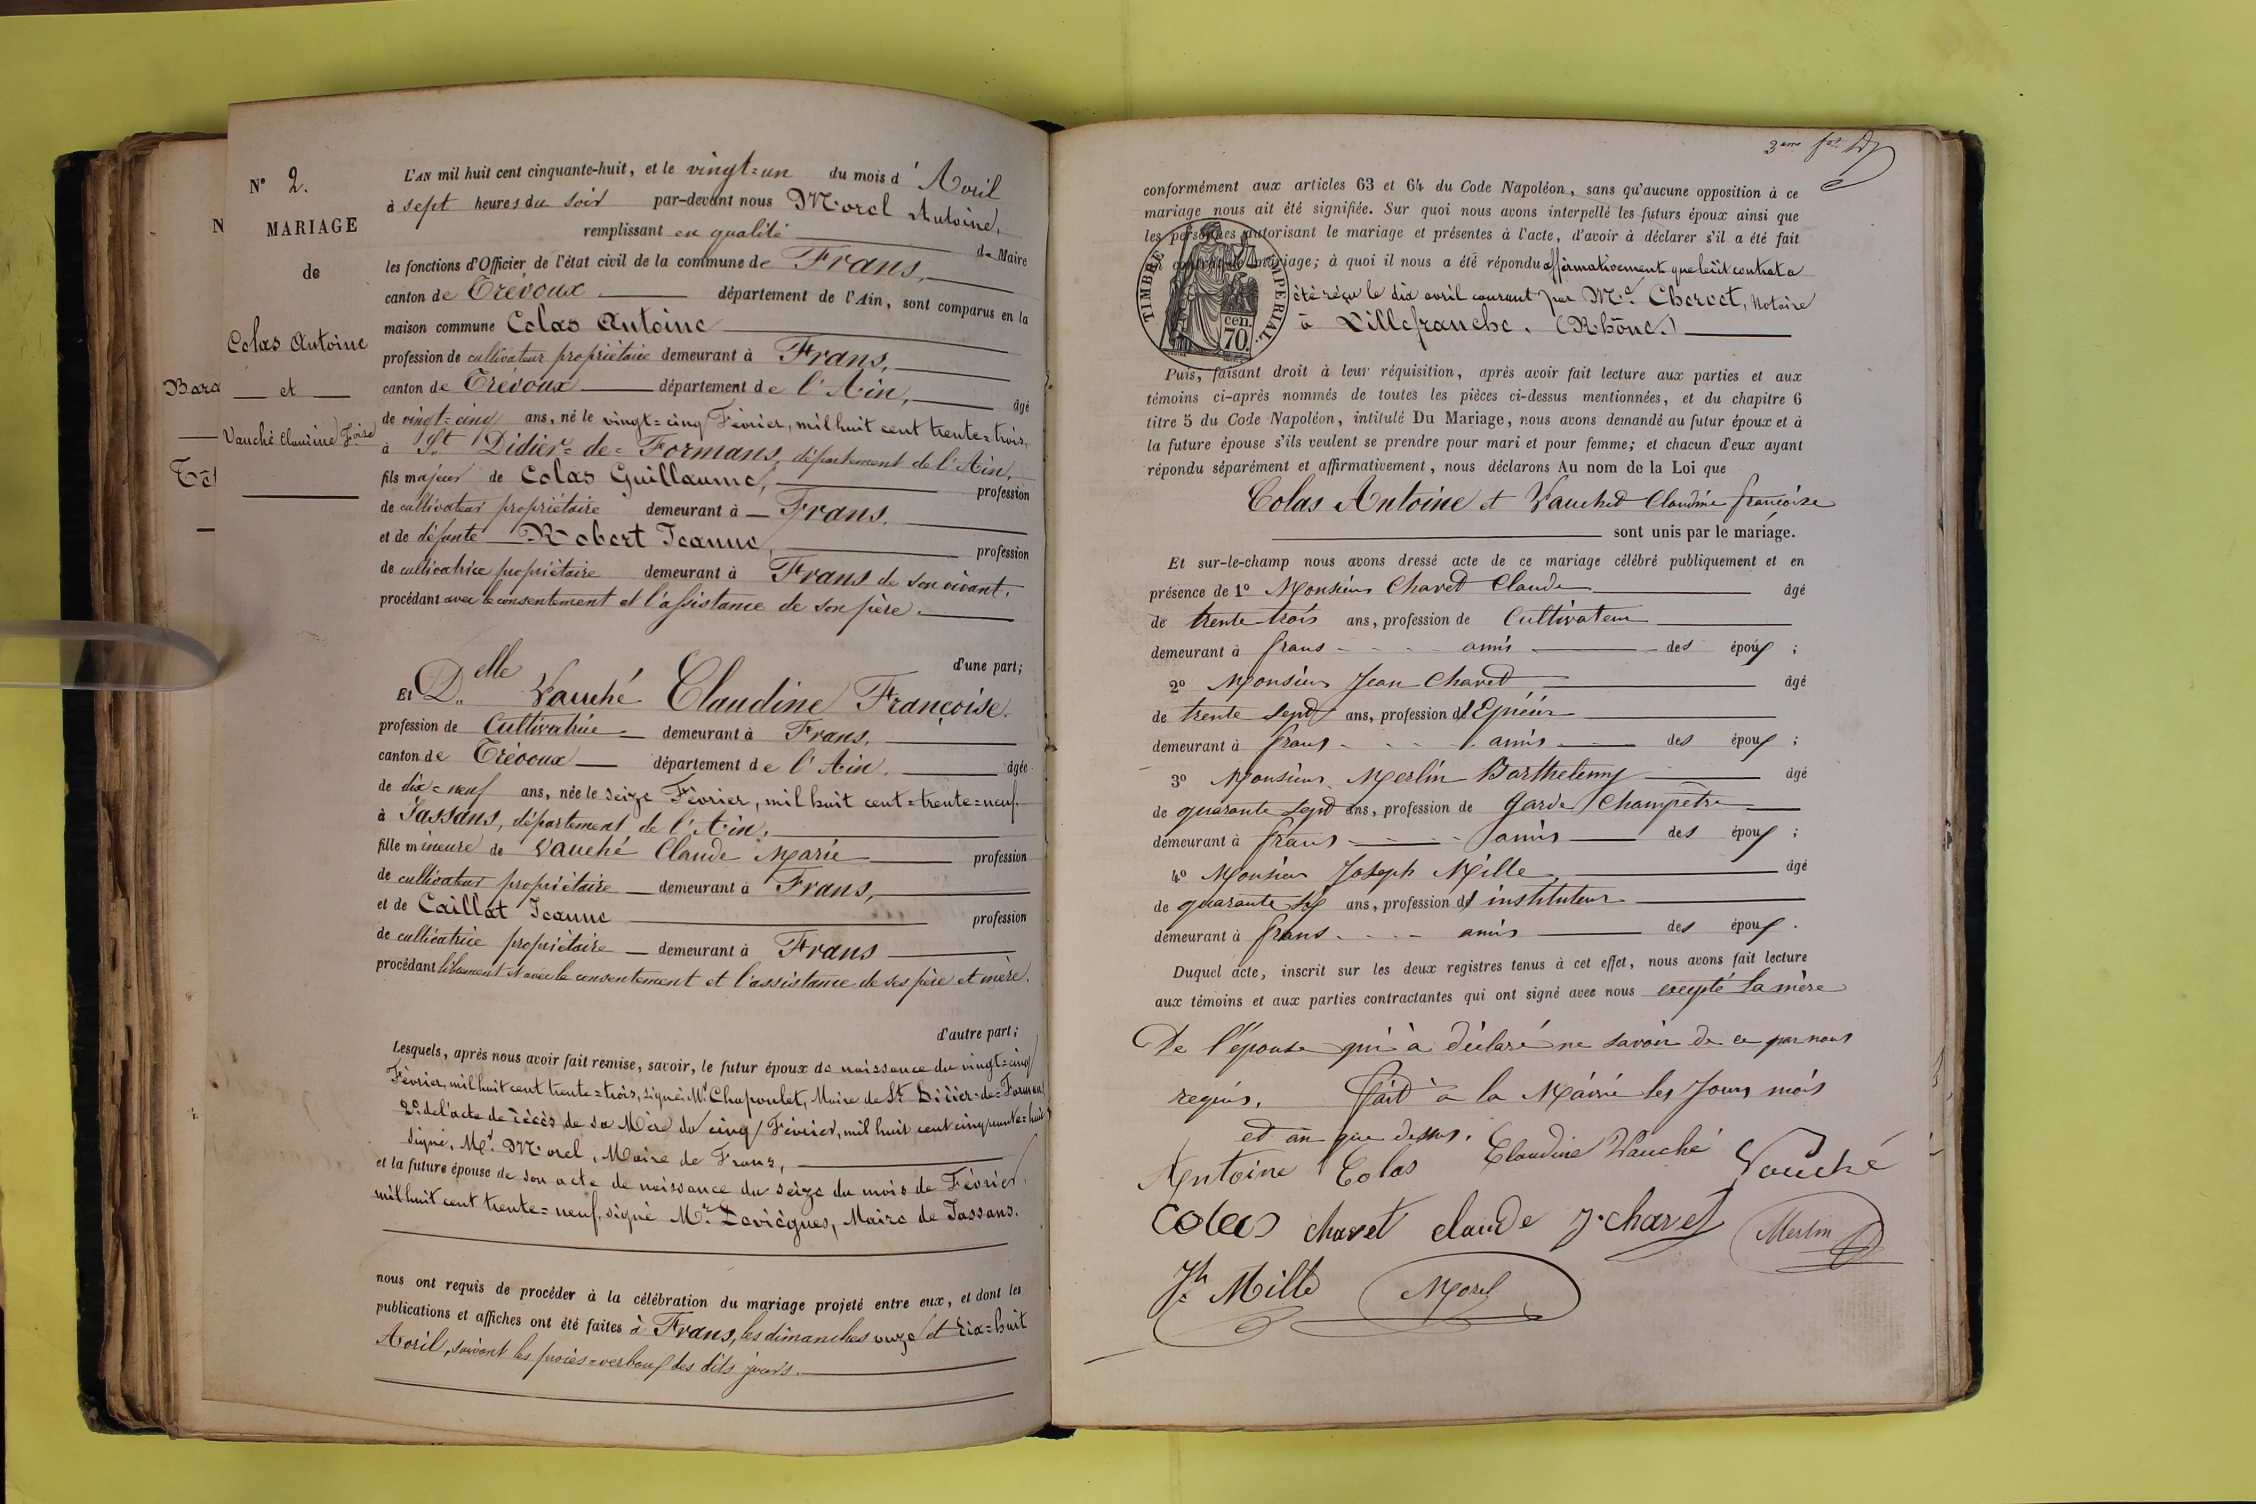 N
Bara
N° 2.
MARIAGE
de
Colas Antoine
et
Vauché Claudine Foise
L'AN mil huit cent cinquante-huit, et le vingt=un du mois d'Avril
à sept heures du soir par-devant nous Morel Antoine,
remplissant en qualité de Maire
les fonctions d'Officier de l'état civil de la commune de Frans,
canton de Trévoux département de l'Ain, sont comparus en la
maison commune Colas Antoine
profession de cultivateur propriétaire demeurant à Frans,
canton de Trévoux département de l'Ain, âgé
de vingt=cinq ans, né le vingt=cinq Février, mil huit cent trente=trois,
à St Didier=de=Formans, département de l'Ain,
fils majeur de Colas Guillaume, profession
de cultivateur propriétaire demeurant à Frans,
et de défunte Robert Jeanne, profession
de cultivatrice propriétaire demeurant à Frans de son vivant,
procédant avec le consentement et l'assistance de son père.
d'une part;
Et Delle Vauché Claudine Françoise.
profession de Cultivatrice demeurant à Frans,
canton de Trévoux département de l'Ain, âgée
de dix=neuf ans, née le seize Février, mil huit cent=trente=neuf
à Jassans, département de l'Ain,
fille mineure de Vauché Claude Marie profession
de cultivateur propriétaire demeurant à Frans,
et de Caillat Jeanne profession
de cultivatrice propriétaire demeurant à Frans
procédant librement et avec le consentement et l'assistance de ses père et mère.
d'autre part;
Lesquels, après nous avoir fait remise, savoir, le futur époux de naissance du vingt=cinq
Février, mil huit cent trente=trois, signé Mr Chapoulet, Maire de St Didier=de=Formans
2° de l'acte de décès de sa Mère du cinq Février, mil huit cent cinquante=huit
signé, Mr Morel, Maire de Frans,
et la future épouse de son acte de naissance du seize du mois de Février,
mil huit cent trente=neuf, signé Mr Deviègues, Maire de Jassans.
nous ont requis de procéder à la célébration du mariage projeté entre eux, et dont les
publications et affiches ont été faites à Frans, les dimanches onze et dix=huit
Avril, suivant les procès=verbaux des dits jours.
3eme fet
conformément aux articles 63 et 64 du Code Napoléon, sans qu'aucune opposition à ce
mariage nous ait été signifiée. Sur quoi nous avons interpellé les futurs époux ainsi que
les personnes autorisant le mariage et présentes à l'acte, d'avoir à déclarer s'il a été fait
contrat de mariage; à quoi il nous a été répondu affirmativement que ledit contrat a
été réçu le dix avril courant par Me Chercet, Notaire
à Villefranche. (Rhône.)
TIMBRE IMPERIAL
70 cen.
Puis, faisant droit à leur réquisition, après avoir fait lecture aux parties et aux
témoins ci-après nommés de toutes les pièces ci-dessus mentionnées, et du chapitre 6
titre 5 du Code Napoléon, intitulé Du Mariage, nous avons demandé au futur époux et à
la future épouse s'ils veulent se prendre pour mari et pour femme; et chacun d'eux ayant
répondu séparément et affirmativement, nous déclarons Au nom de la Loi que
Colas Antoine et Vauché Claudine françoise
sont unis par le mariage.
Et sur-le-champ nous avons dressé acte de ce mariage célébré publiquement et en
présence de 1° Monsieur Chavet Claude âgé
de trente trois ans, profession de Cultivateur
demeurant à frans amis des époux ;
2° Monsieur Jean Chavet âgé
de trente sept ans, profession d'Epicier
demeurant à frans amis des époux ;
3° Monsieur Merlin Barthelemy âgé
de quarante sept ans, profession de Garde Champêtre
demeurant à frans amis des époux ;
4° Monsieur Joseph Mille âgé
de quarante six ans, profession d'instituteur
demeurant à frans amis des époux .
Duquel acte, inscrit sur les deux registres tenus à cet effet, nous avons fait lecture
aux témoins et aux parties contractantes qui ont signé avec nous excepté la mère
De l'épouse qui à déclaré ne savoir de ce par nous
requis. fait à la Mairie les Jours, mois
et an que dessus.
Antoine Colas Claudine Vauché Vauché
Colas chavet claude J. chavet Merlin
Jh Mille Morel